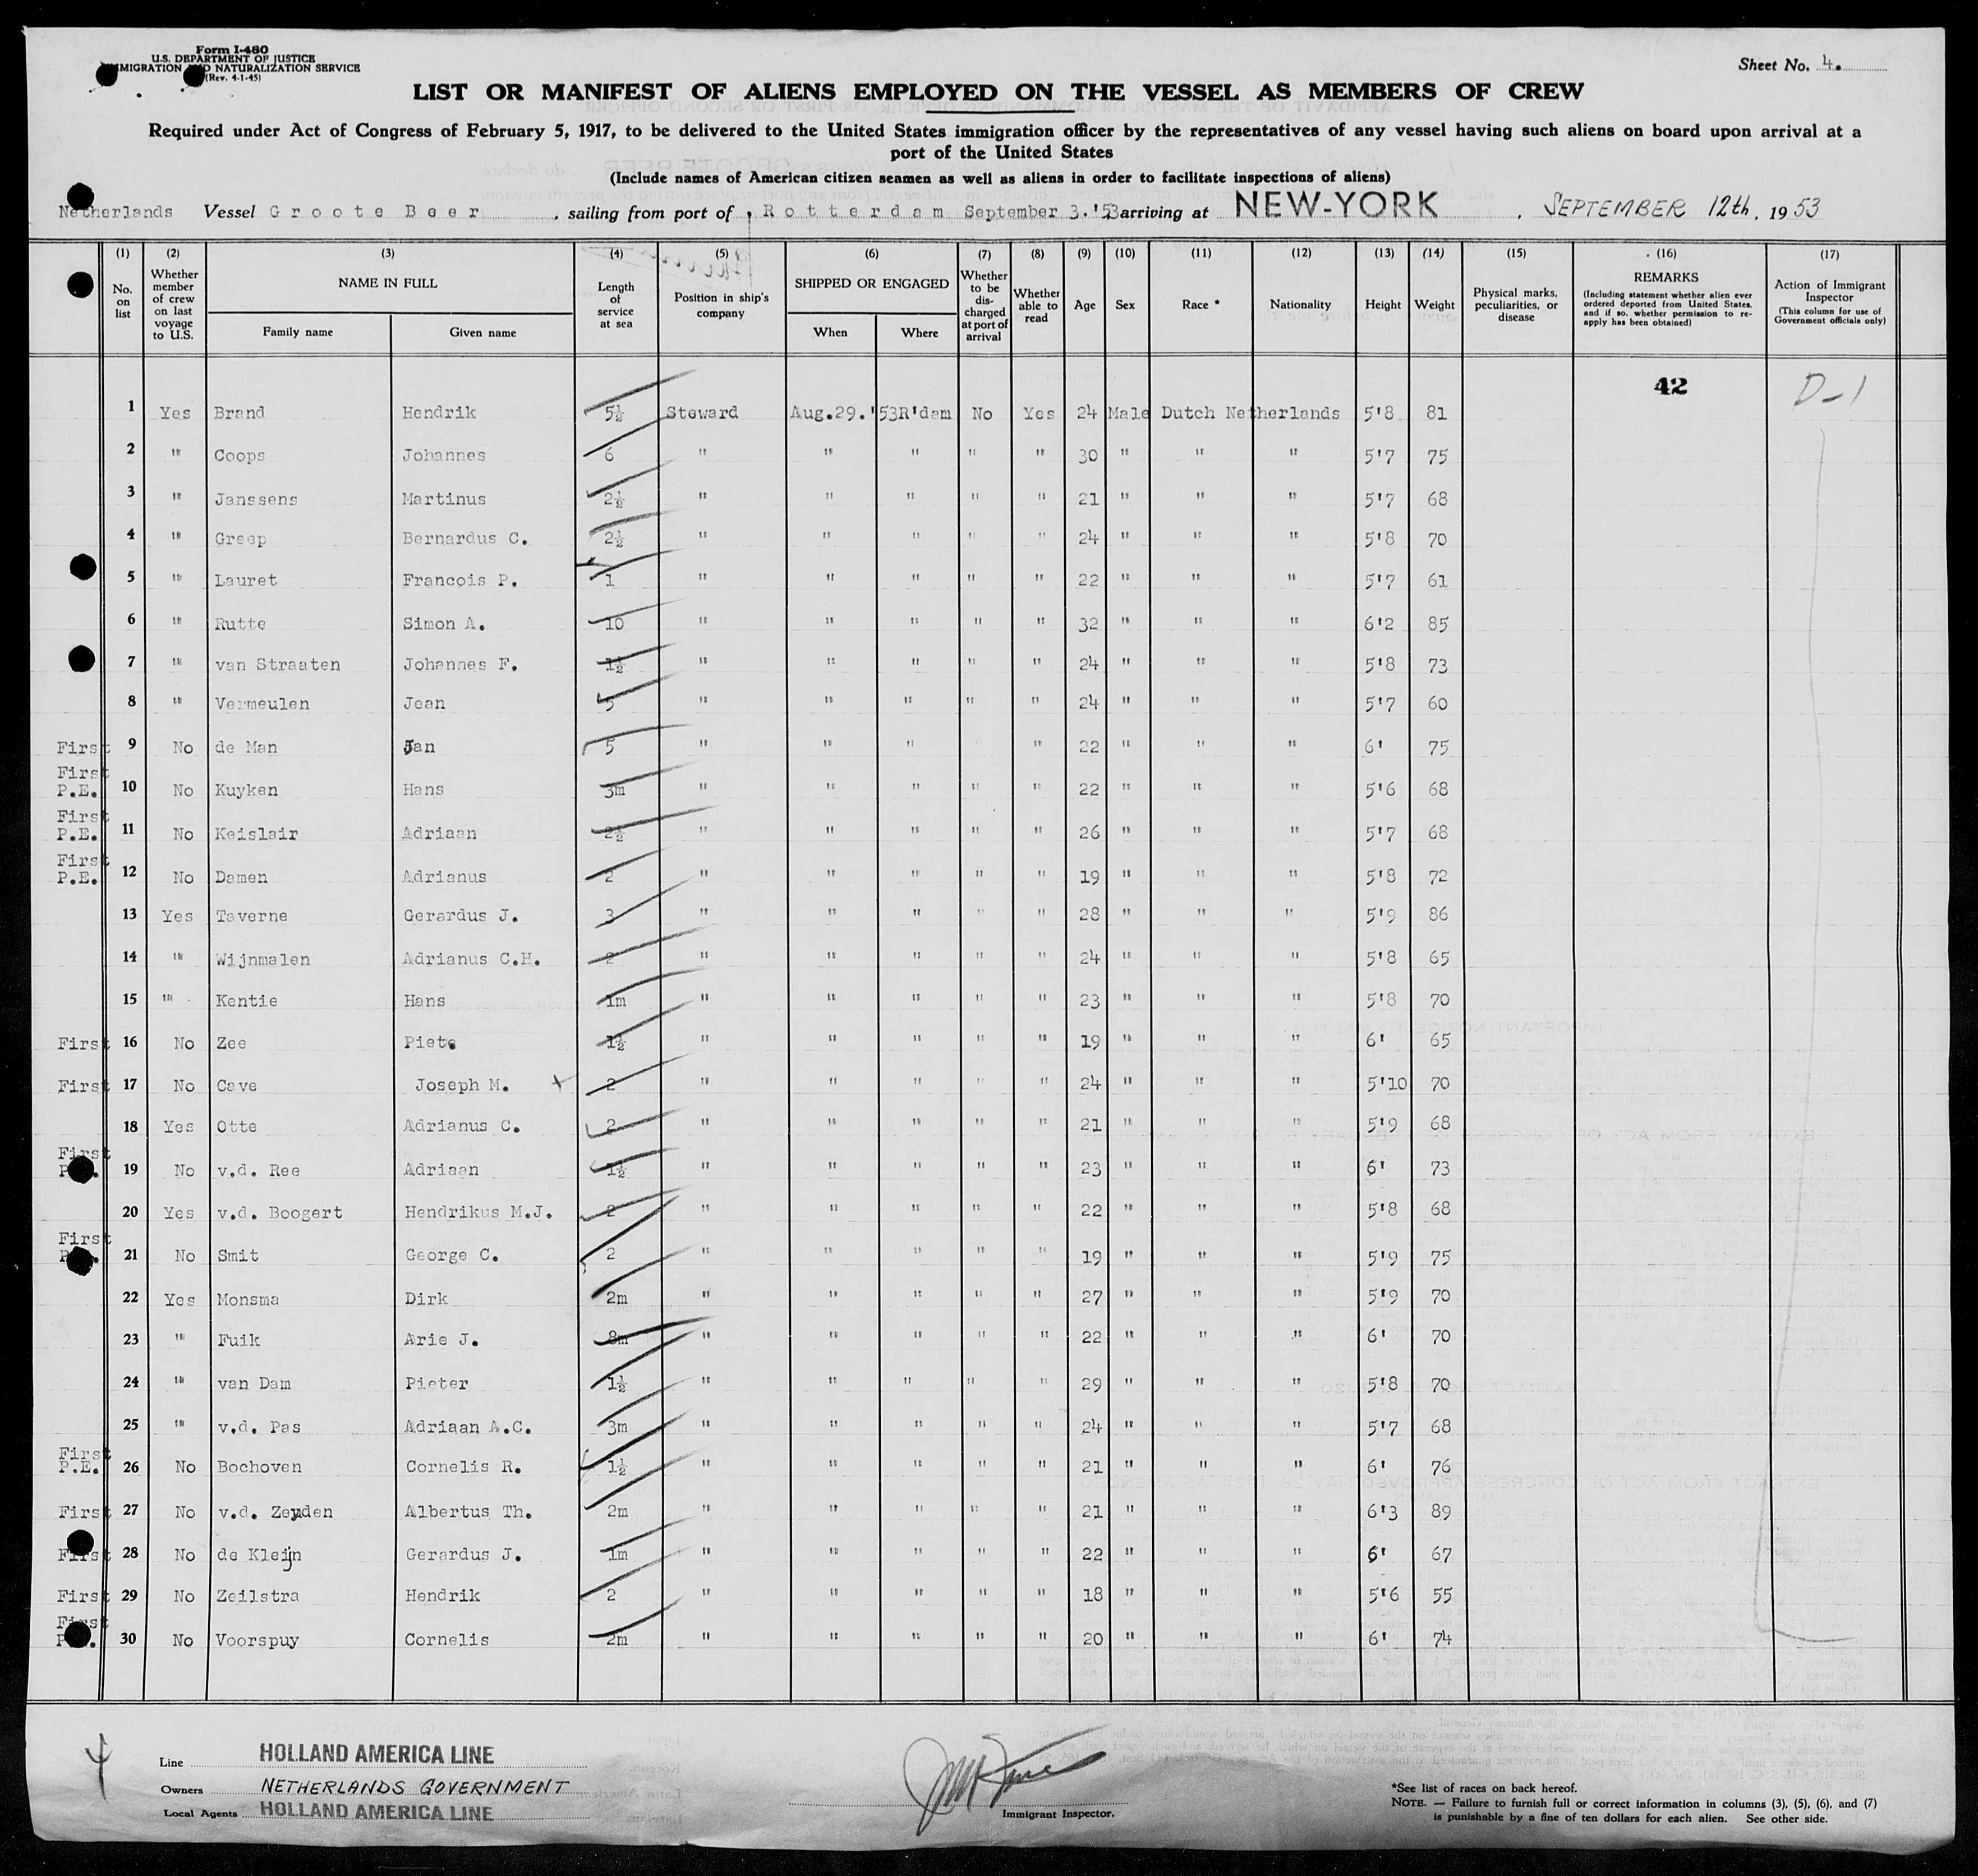 Form I-480
U.S. DEPARTMENT OF JUSTICE
IMMIGRATION AND NATURALIZATION SERVICE
(Rev. 4-1-45)
Sheet No. 4.
LIST OR MANIFEST OF ALIENS EMPLOYED ON THE VESSEL AS MEMBERS OF CREW
Required under Act of Congress of February 5, 1917, to be delivered to the United States immigration officer by the representatives of any vessel having such aliens on board upon arrival at a
port of the United States
(Include names of American citizen seamen as well as aliens in order to facilitate inspections of aliens)
Netherlands Vessel Groote Beer, sailing from port of Rotterdam September 3.'53 arriving at NEW-YORK, SEPTEMBER 12th, 1953
(1) (2) (3) (4) (5) (6) (7) (8) (9) (10) (11) (12) (13) (14) (15) (16) (17)
No. on list
Whether member of crew on last voyage to U.S.
NAME IN FULL
Family name Given name
Length of service at sea
Position in ship's company
SHIPPED OR ENGAGED
When Where
Whether to be discharged at port of arrival
Whether able to read
Age Sex Race * Nationality Height Weight
Physical marks, peculiarities, or disease
REMARKS
(Including statement whether alien ever ordered deported from United States, and if so, whether permission to re-apply has been obtained)
Action of Immigrant Inspector
(This column for use of Government officials only)
42 D-1
1 Yes Brand Hendrik 5½ Steward Aug.29.'53 R'dam No Yes 24 Male Dutch Netherlands 5'8 81
2 " Coops Johannes 6 " " " " " 30 " " " 5'7 75
3 " Janssens Martinus 2½ " " " " " 21 " " " 5'7 68
4 " Greep Bernardus C. 2½ " " " " " 24 " " " 5'8 70
5 " Lauret Francois P. 1 " " " " " 22 " " " 5'7 61
6 " Rutte Simon A. 10 " " " " " 32 " " " 6'2 85
7 " van Straaten Johannes F. 1½ " " " " " 24 " " " 5'8 73
8 " Vermeulen Jean 5 " " " " " 24 " " " 5'7 60
First 9 No de Man Jan 5 " " " " 22 " " " 6' 75
First P.E. 10 No Kuyken Hans 3m " " " " " 22 " " " 5'6 68
First P.E. 11 No Keislair Adriaan 2½ " " " " " 26 " " " 5'7 68
First P.E. 12 No Damen Adrianus 2 " " " " " 19 " " " 5'8 72
13 Yes Taverne Gerardus J. 3 " " " " " 28 " " " 5'9 86
14 " Wijnmalen Adrianus C.H. 2 " " " " " 24 " " " 5'8 65
15 " Kentie Hans 1m " " " " " 23 " " " 5'8 70
First 16 No Zee Piet 1½ " " " " " 19 " " " 6' 65
First 17 No Cave Joseph M. 2 " " " " " 24 " " " 5'10 70
18 Yes Otte Adrianus C. 2 " " " " " 21 " " " 5'9 68
First 19 No v.d. Ree Adriaan 1½ " " " " " 23 " " " 6' 73
20 Yes v.d. Boogert Hendrikus M.J. 2 " " " " " 22 " " " 5'8 68
First 21 No Smit George C. 2 " " " " " 19 " " " 5'9 75
22 Yes Monsma Dirk 2m " " " " " 27 " " " 5'9 70
23 " Fuik Arie J. 8m " " " " " 22 " " " 6' 70
24 " van Dam Pieter 1½ " " " " " 29 " " " 5'8 70
25 " v.d. Pas Adriaan A.C. 3m " " " " " 24 " " " 5'7 68
First P.E. 26 No Bochoven Cornelis R. 1½ " " " " " 21 " " " 6' 76
First 27 No v.d. Zeyden Albertus Th. 2m " " " " " 21 " " " 6'3 89
First 28 No de Kleijn Gerardus J. 1m " " " " " 22 " " " 6' 67
First 29 No Zeilstra Hendrik 2 " " " " " 18 " " " 5'6 55
First 30 No Voorspuy Cornelis 2m " " " " " 20 " " " 6' 74
Line HOLLAND AMERICA LINE
Owners NETHERLANDS GOVERNMENT
Local Agents HOLLAND AMERICA LINE
Immigrant Inspector.
*See list of races on back hereof.
NOTE. — Failure to furnish full or correct information in columns (3), (5), (6), and (7)
is punishable by a fine of ten dollars for each alien. See other side.